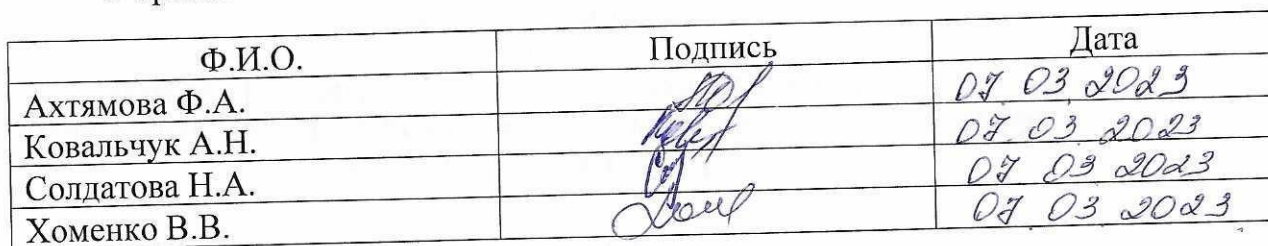 Ф.И.О. Подпись Дата
Ахтямова Ф.А. 07 03 2023
Ковальчук А.Н. 07 03 2023
Солдатова Н.А. 07 03 2023
Хоменко В.В. 07 03 2023